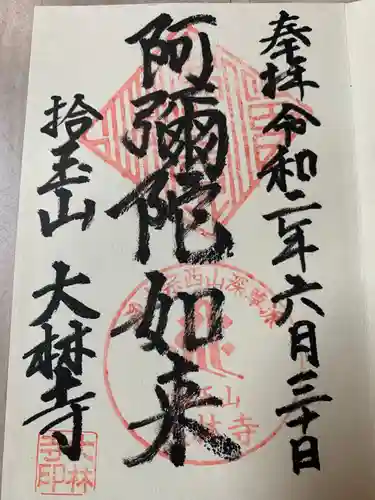 奉拝 令和二年六月三十日
阿彌陀如来
拾玉山 大林寺
大林寺印